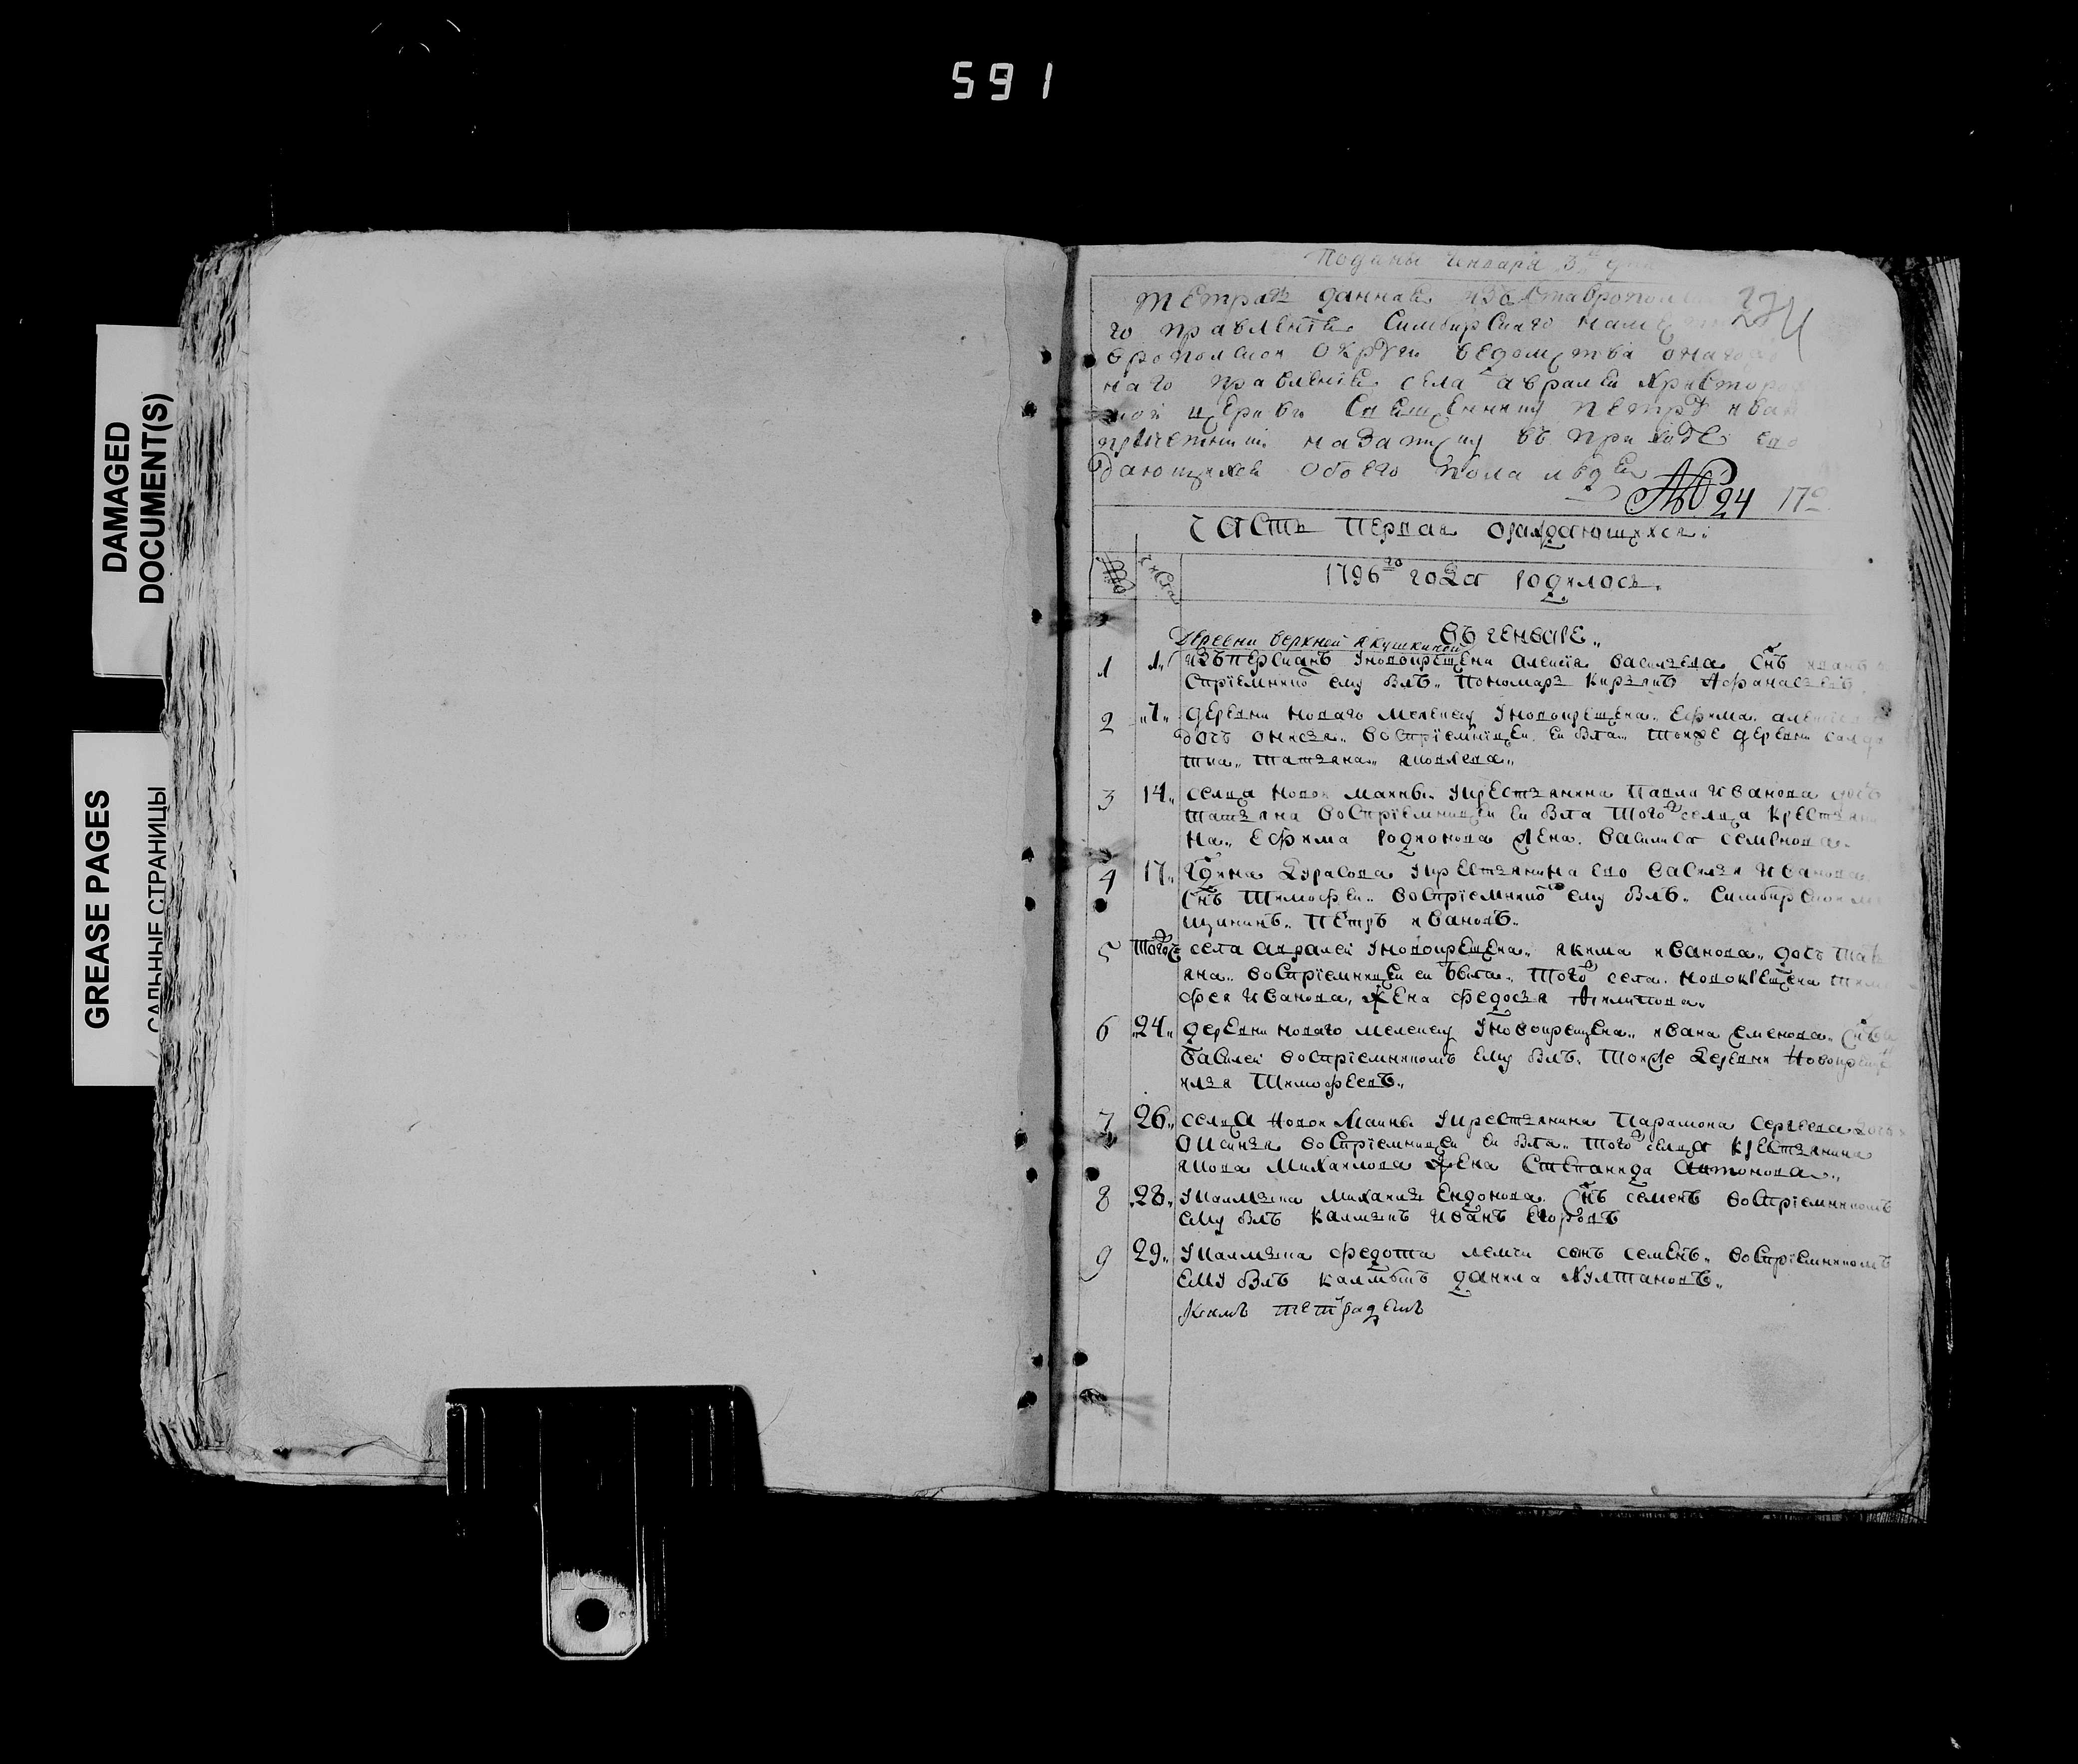 591
DAMAGED
DOCUMENT(S)
GREASE PAGES
САЛЬНЫЕ СТРАНИЦЫ
Поданы генваря 3
234
тетрать данная изъ Ставропол
го правления Симбирскаго намес
вропольской округи ведомства онаго
наго правления села Авралей Христорож
ной церкви священнику Петру Иван
причетники на записку въ приходе ево
дающихся обоего пола людей
№ 24 179
часть первая о раждающихся.
числа
1796го года родилось.
въ генваре
Деревни верхней Якушкиной
1 1 изъ персианъ у новокрещена Алексея Васильева снъ Иванъ
сприемнико ему былъ пономарь Кирилъ Афанасьевъ
2 7 деревни новаго Мелекесу у новокрещена Ефима Алексе
дочь восприемницеи еи была тоеже деревни салда
тка татьяна яковлева
3 14 сельца новои Маины у крестьянина Павла Иванова дочь
татьяна восприемницеи еи была тогоже сельца крестьяни
на Ефима Родионова жена Василиса семенова
4 17 Г дина Дурасова у крестьянина ево Василья Иванова
снъ Тимофеи восприемнико ему былъ Симбирскои ме
щининъ Петръ Ивановъ
5 тогожъ села Авралеи у новокрещена якима иванова дочь тать
яна восприемницеи еи была тогоже села новокрещена Тимо
фея Иванова жена федосья Филипова
6 24 деревни новаго мелекесу у новокрещена ивана семенова снъ
Василеи восприемникомъ ему былъ тоеже деревни новокреще
илья Тимофеевъ
7 26 сельца новои Маины у крестьянина Парамона Сергеева дочь
Ксинья восприемницеи еи была тогоже сельца крестьянина
якова Михаилова жена Степанида Антонова
8 28 у калмыка Михаила Ендонова снъ семенъ восприемникомъ
ему былъ калмыкъ Иванъ Егоровъ
9 29 у калмыка федота сынъ семенъ восприемникомъ
ему былъ калмыкъ данила
тетрадемъ